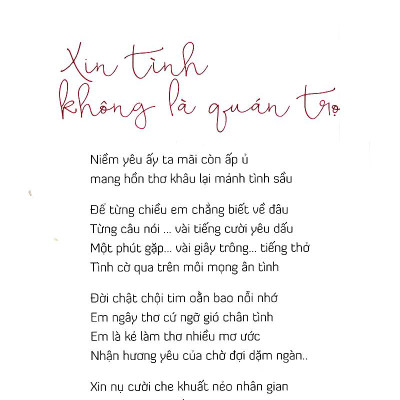 Xin tình
không là quán trọ
Niềm yêu ấy ta mãi còn ấp ủ
mang hồn thơ khâu lại mảnh tình sầu
Để từng chiều em chẳng biết về đâu
Từng câu nói ... vài tiếng cười yêu dấu
Một phút gặp... vài giây trông... tiếng thở
Tình cờ qua trên môi mọng ân tình
Đời chật chội tim oằn bao nỗi nhớ
Em ngây thơ cứ ngỡ gió chân tình
Em là kẻ làm thơ nhiều mơ ước
Nhận hương yêu của chờ đợi dặm ngàn..
Xin nụ cười che khuất nẻo nhân gian